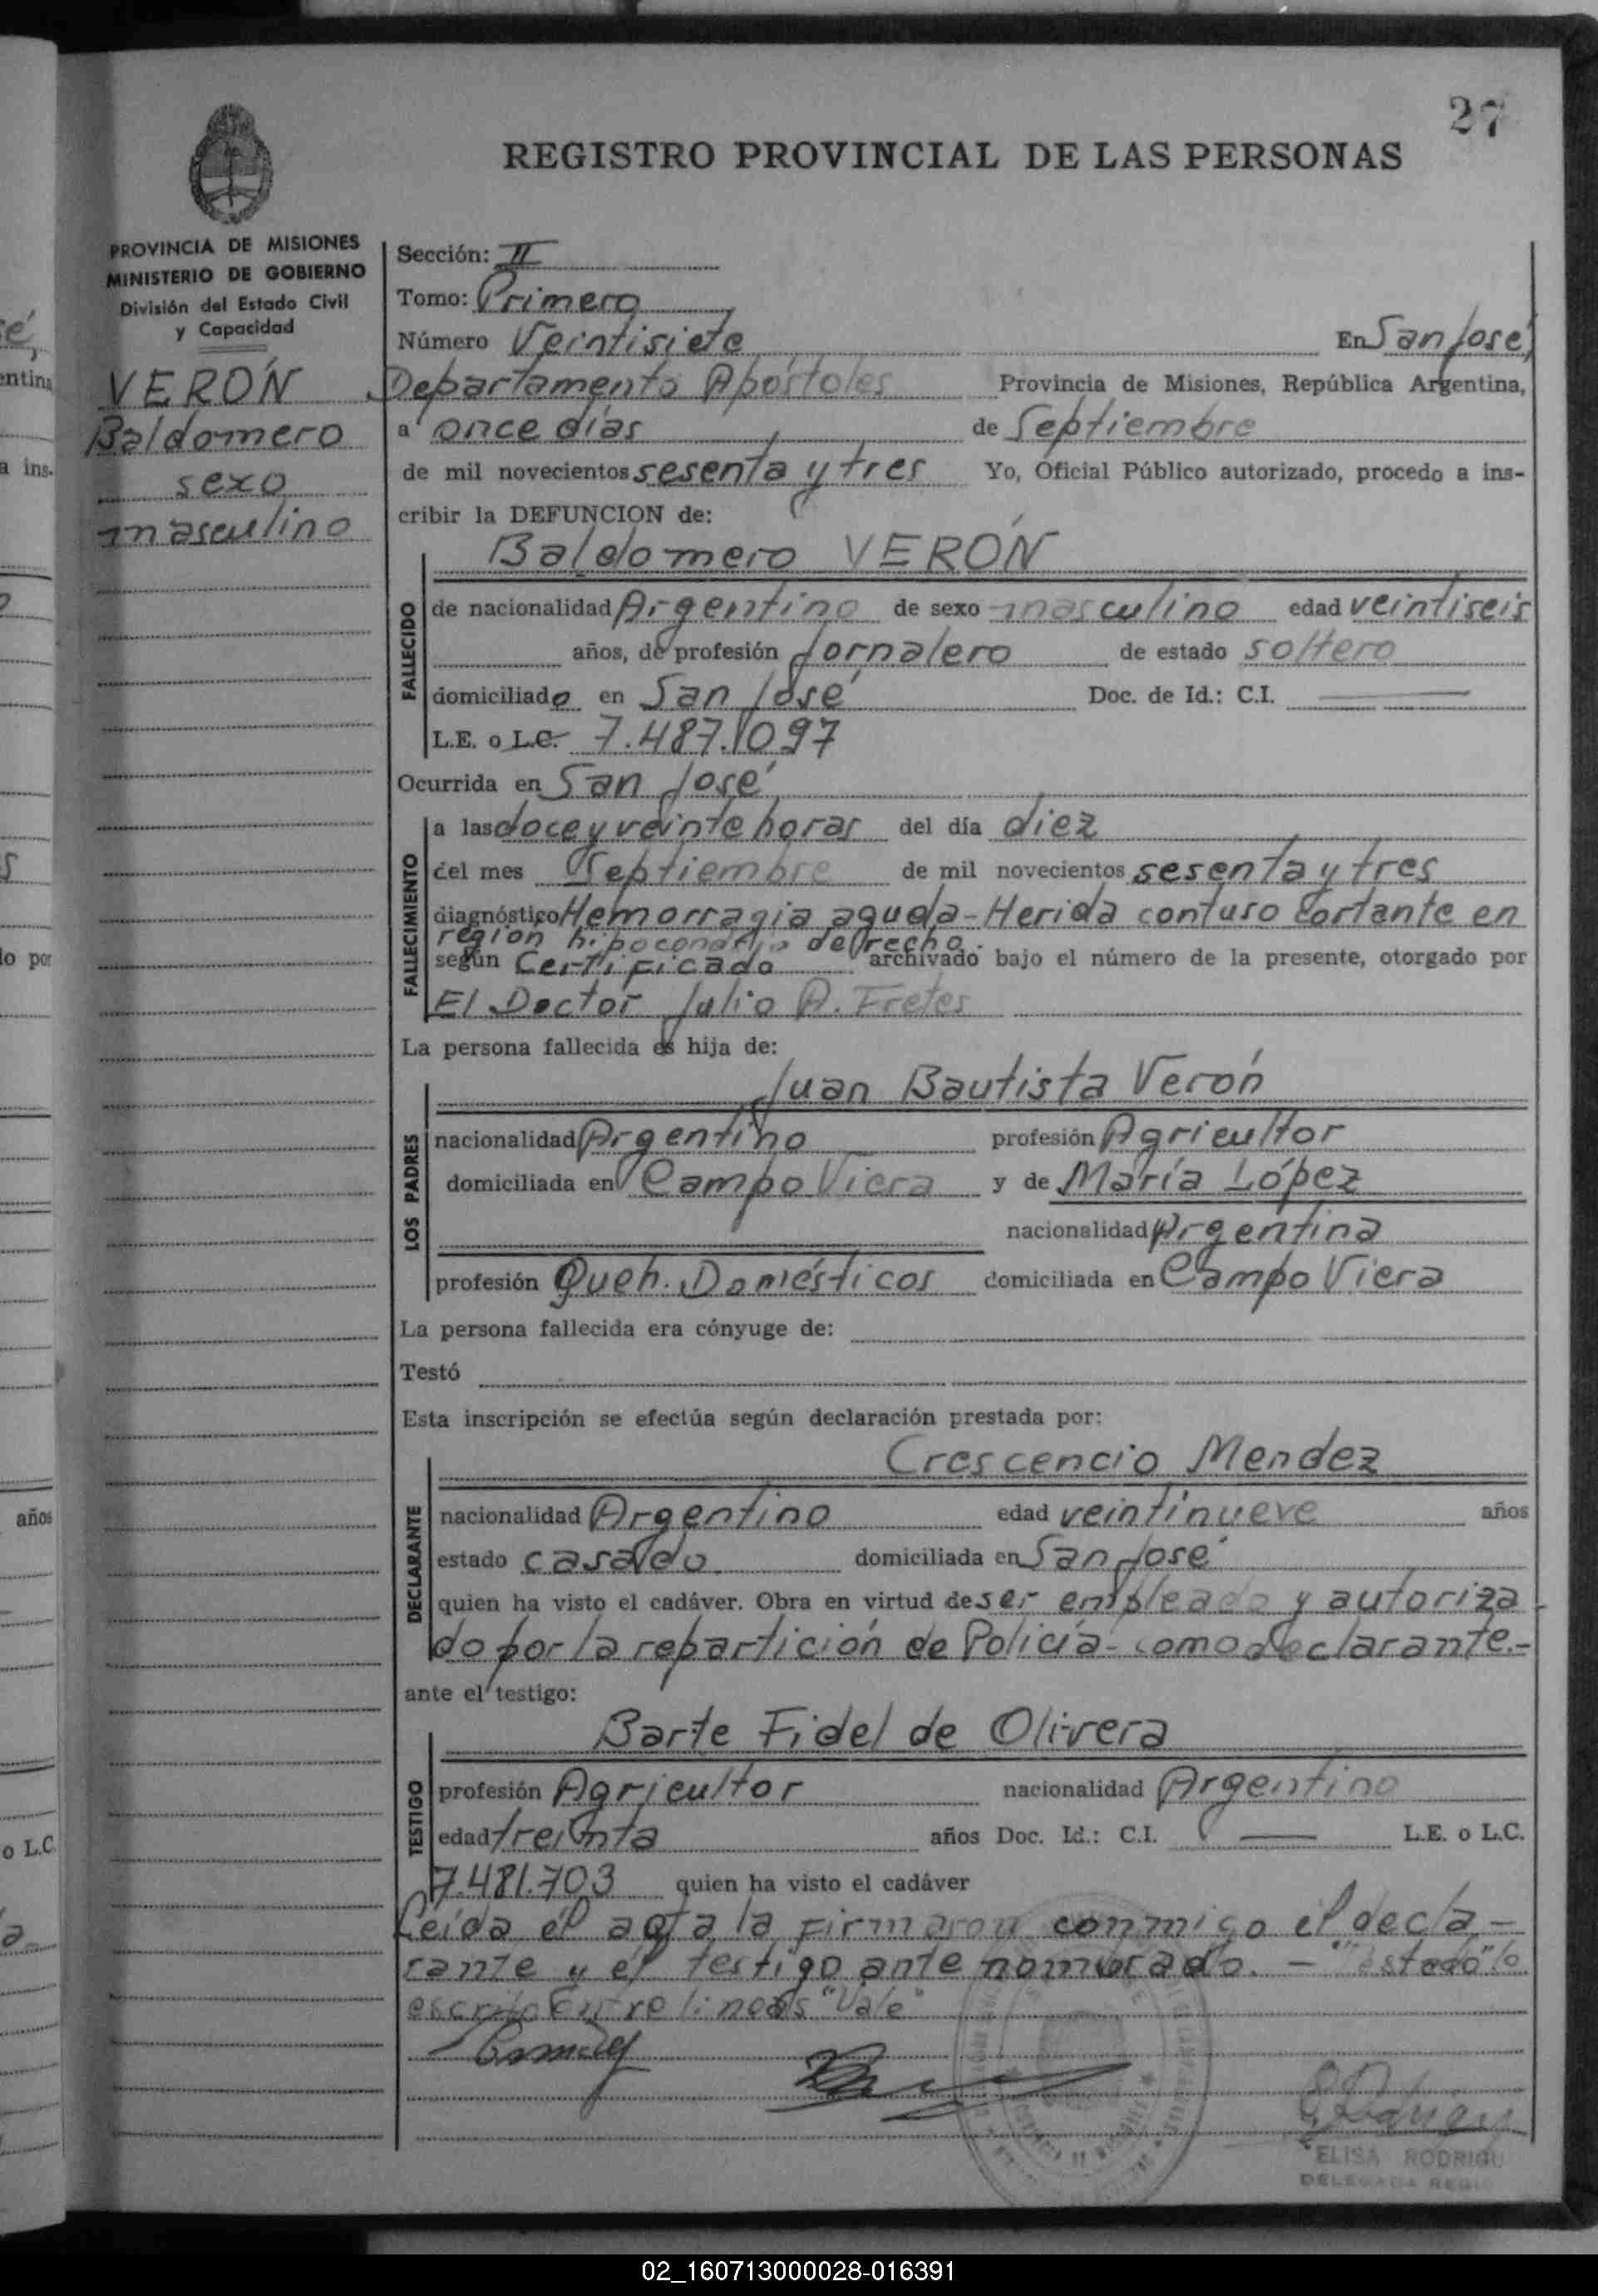 27
REGISTRO PROVINCIAL DE LAS PERSONAS
PROVINCIA DE MISIONES
MINISTERIO DE GOBIERNO
División del Estado Civil
y Capacidad
VERÓN
Baldomero
sexo
masculino
Sección: II
Tomo: Primero
Número Veintisiete En San José,
Departamento Apóstoles Provincia de Misiones, República Argentina,
a once días de Septiembre
de mil novecientos sesenta y tres Yo, Oficial Público autorizado, procedo a ins-
cribir la DEFUNCION de:
Baldomero VERÓN
FALLECIDO
de nacionalidad Argentino de sexo masculino edad veintiseis
años, de profesión Jornalero de estado soltero
domiciliado en San José Doc. de Id.: C.I.
L.E. o L.C. 7.487.097
Ocurrida en San José
FALLECIMIENTO
a las doce y veinte horas del día diez
del mes Septiembre de mil novecientos sesenta y tres
diagnóstico Hemorragia aguda - Herida contuso cortante en
región hipocondrio derecho.
según Certificado archivado bajo el número de la presente, otorgado por
El Doctor Julio A. Fretes
La persona fallecida es hija de:
LOS PADRES
Juan Bautista Verón
nacionalidad Argentino profesión Agricultor
domiciliada en Campo Viera y de María López
nacionalidad Argentina
profesión Queh. Domésticos domiciliada en Campo Viera
La persona fallecida era cónyuge de:
Testó
Esta inscripción se efectúa según declaración prestada por:
DECLARANTE
Crescencio Mendez
nacionalidad Argentino edad veintinueve años
estado casado domiciliada en San José
quien ha visto el cadáver. Obra en virtud de ser empleado y autoriza
do por la repartición de Policía - como declarante.-
ante el testigo:
TESTIGO
Barte Fidel de Olivera
profesión Agricultor nacionalidad Argentino
edad treinta años Doc. Id.: C.I. L.E. o L.C.
7.481.703 quien ha visto el cadáver
Leída el acta la firmaron conmigo el decla-
rante y el testigo ante nombrado. - "estado" lo
escrito entre lineas "Vale"
ELISA
02_160713000028-016391